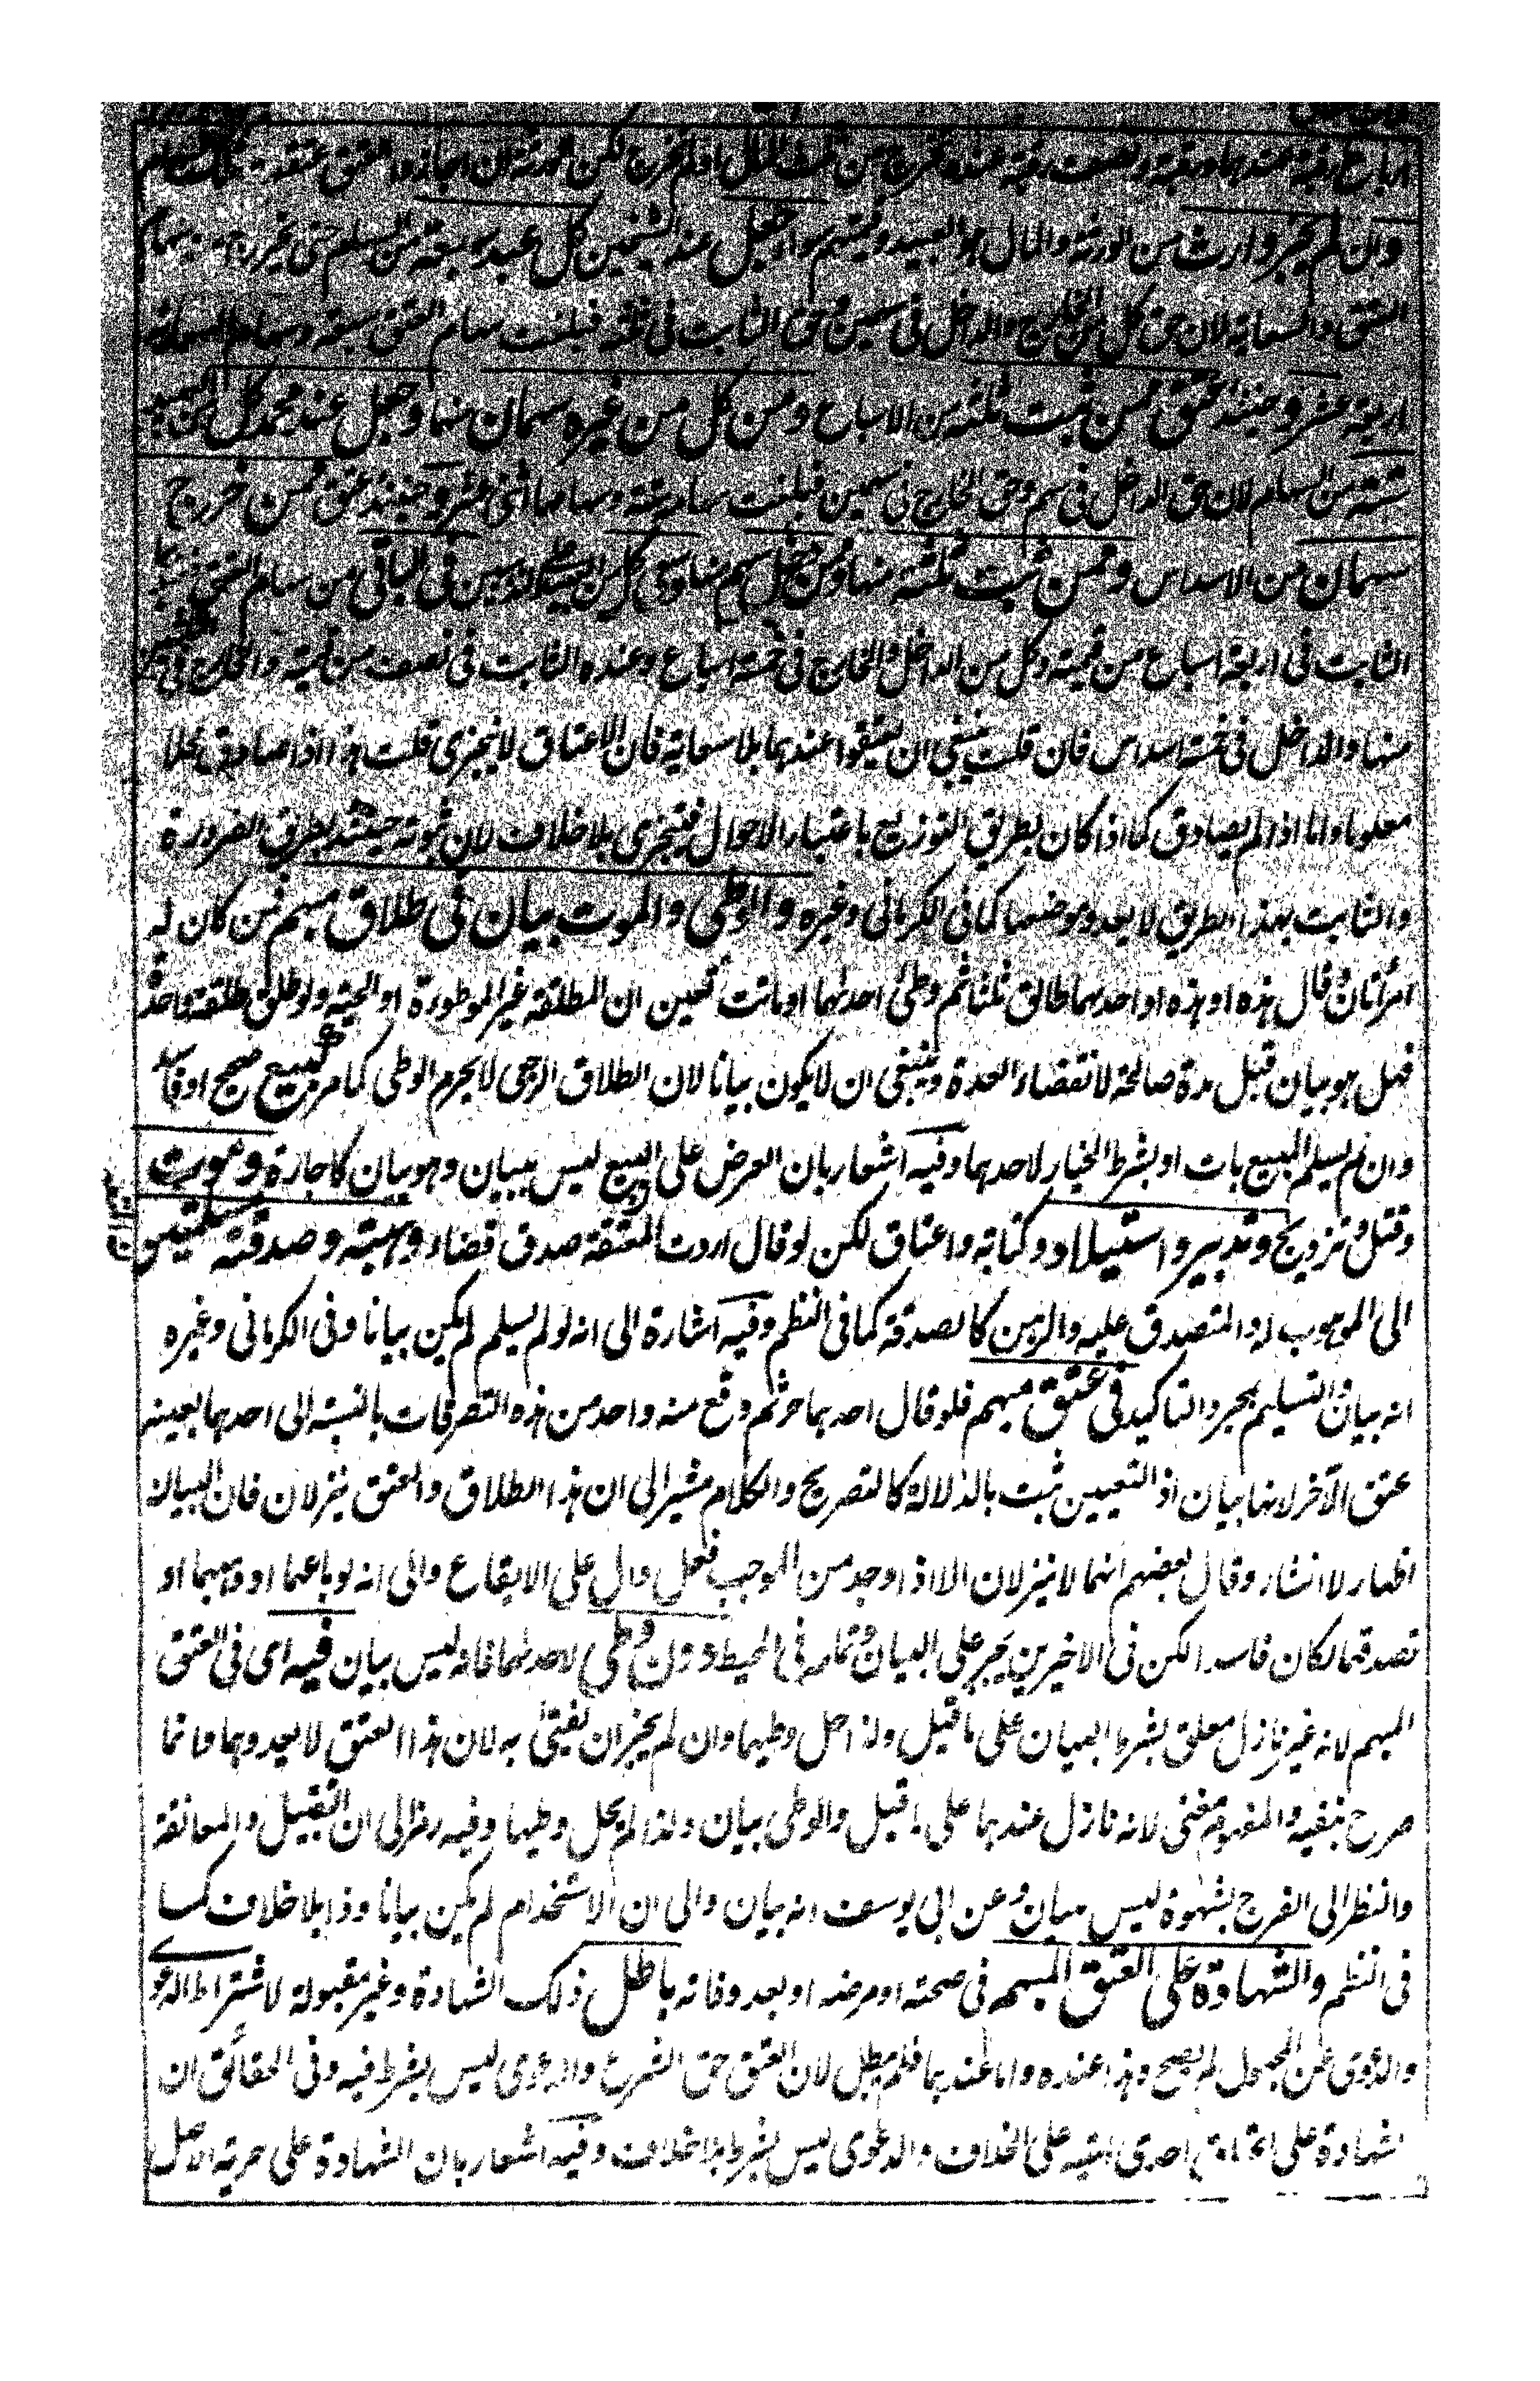 ارباع رقبة عندهما وربعه ونصف رقبة عنده تخرج من ثلث المال او لم تخرج لكن الورثة ان اجازوا
وان لم يجز وارث من الورثة والمال هو العبيد وقيمتهم سواء جعل عند الشيخين كل عبد سبعة من السهام حتى
العتق والسعاية لان حق كل من الخارج والداخل فى سهمين وحق الثابت فى ثلثة فبلغت سهام العتق سبعة وسهام السعاية
اربعة عشر وحينئذ عتق ممن ثبت ثلثة من الاسباع ومن كل من غيره سهمان منها وجعل عند محمد كل من العبيد
ستة من السهام لان حق الداخل فى سهم وحق الخارج فى سهمين فبلغت سهامه ستة وسهامها اثنى عشر وحينئذ عتق ممن خرج
سهمان من الاسداس وممن ثبت ثلثة منها وممن دخل سهم منها وسعى كل من العبيد فى الباقى من سهام العتق
الثابت فى اربعة اسباع من قيمته وكل من الداخل والخارج فى خمسة اسباع وعنده الثابت فى نصف من قيمته والخارج فى
منها والداخل فى خمسة اسداس فان قلت ينبغى ان يعتقوا عندهما بلا سعاية فان الاعتاق لا يتجزى قلت هذا اذا صادق محلا
معلوما واما اذا لم يصادق كما اذا كان بطريق التوزيع باعتبار الاحوال فيتجزى بلا خلاف لان ثبوته حينئذ بطريق الضرورة
والثابت بهذا الطريق لا يعدو موضعها كما فى الكرمانى وغيره والوطى والموت بيان فى طلاق مبهم فمن كان له
امرأتان وقال هذه او هذه او احدىهما طالق ثلثا ثم وطئ احدىهما او ماتت تعين ان المطلقة غير الموطوءة او الميتة ولو طلق طلقة واحدة
فهل هو بيان قبل مدة صالحة لانقضاء العدة وينبغى ان لا يكون بيانا لان الطلاق الرجعى لا يحرم الوطى كما مر كبيع صحيح او فاسد
وان لم يسلم المبيع بات او بشرط الخيار لاحدهما وفيه اشعار بان العرض على البيع ليس ببيان وهو بيان كاجازة وموت
وقتل وتزويج وتدبير واستيلاد وكتابة واعتاق لكن لو قال اردت المعتقة صدق قضاء وهبته وصدقته مسلمتين
الى الموهوب له والمتصدق عليه والرهن كالصدقة كما فى النظم وفيه اشارة الى انه لو لم يسلم لم يكن بيانا وفى الكرمانى وغيره
انه بيان والتسليم بمجرد التاكيد فى عتق مبهم فلو قال احدهما حر ثم وقع منه واحد من هذه التصرفات بالنسبة الى احدهما بعينه
عتق الآخر لانها بيان اذ التعيين ثبت بالدلالة كالتصريح والكلام مشير الى ان هذا الطلاق والعتق ينزلان فان البيان
اظهار لا انشاء وقال بعضهم انهما لا ينزلان الا اذا وجد من الموجب فعل دال على الايقاع والى انه لو باعهما او وهبهما او
تصدقهما لكان فاسدا لكن فى الاخيرين يجبر على البيان وتمامه فى المحيط دون وطى لاحدىهما فانه ليس بيان فيه اى فى العتق
المبهم لانه غير نازل معلق بشرط البيان على ما قيل ولذا حل وطيهما وان لم يجز ان يفتى به لان هذا العتق لا يعدوهما وانما
صرح بنفيه والمفهوم مغنى لانه نازل عندهما على ما قيل والوطى بيان ولذا لم يحل وطيهما وفيه رمز الى ان التقبيل والمعانقة
والنظر الى الفرج بشهوة ليس ببيان وعن ابى يوسف انه بيان والى ان الاستخدام لم يكن بيانا وذا بلا خلاف كما
فى النظم والشهادة على العتق المبهم فى صحته او مرضه او بعد وفاته باطل ذلك الشهادة وغير مقبولة لاشتراط الدعوى
والدعوى عن المجهول لم يصح وهذا عنده واما عندهما فلم يبطل لان العتق حق الشرع والدعوى ليس بشرط فيه وفى الحقائق ان
الشهادة على احدى امتيه على الخلاف والدعوى ليس بشرط بلا خلاف وفيه اشعار بان الشهادة على حرية الاصل